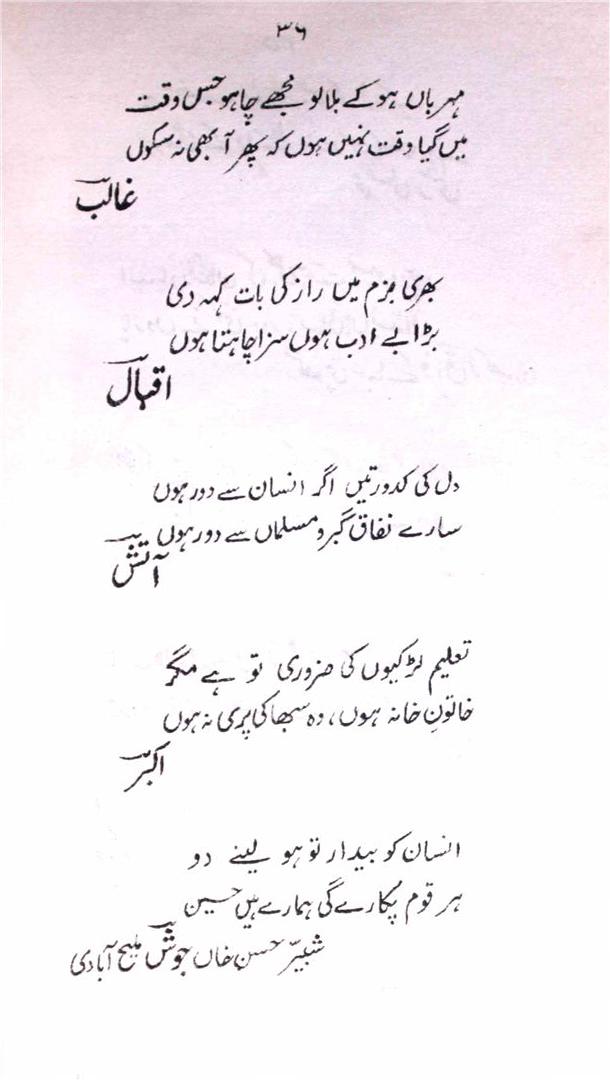 ۳۶
مہرباں ہو کے بلالو مجھے چاہو جس وقت
میں گیا وقت نہیں ہوں کہ پھر آ بھی نہ سکوں
غالب
بھری بزم میں راز کی بات کہہ دی
بڑا بے ادب ہوں سزا چاہتا ہوں
اقبال
دل کی کدورتیں اگر انسان سے دور ہوں
سارے نفاق گبرو مسلماں سے دور ہوں
آتش
تعلیم لڑکیوں کی ضروری تو ہے مگر
خاتونِ خانہ ہوں، وہ سبھا کی پری نہ ہوں
اکبر
انسان کو بیدار تو ہو لینے دو
ہر قوم پکارے گی ہمارے ہیں حسین
شبیر حسن خاں جوش ملیح آبادی